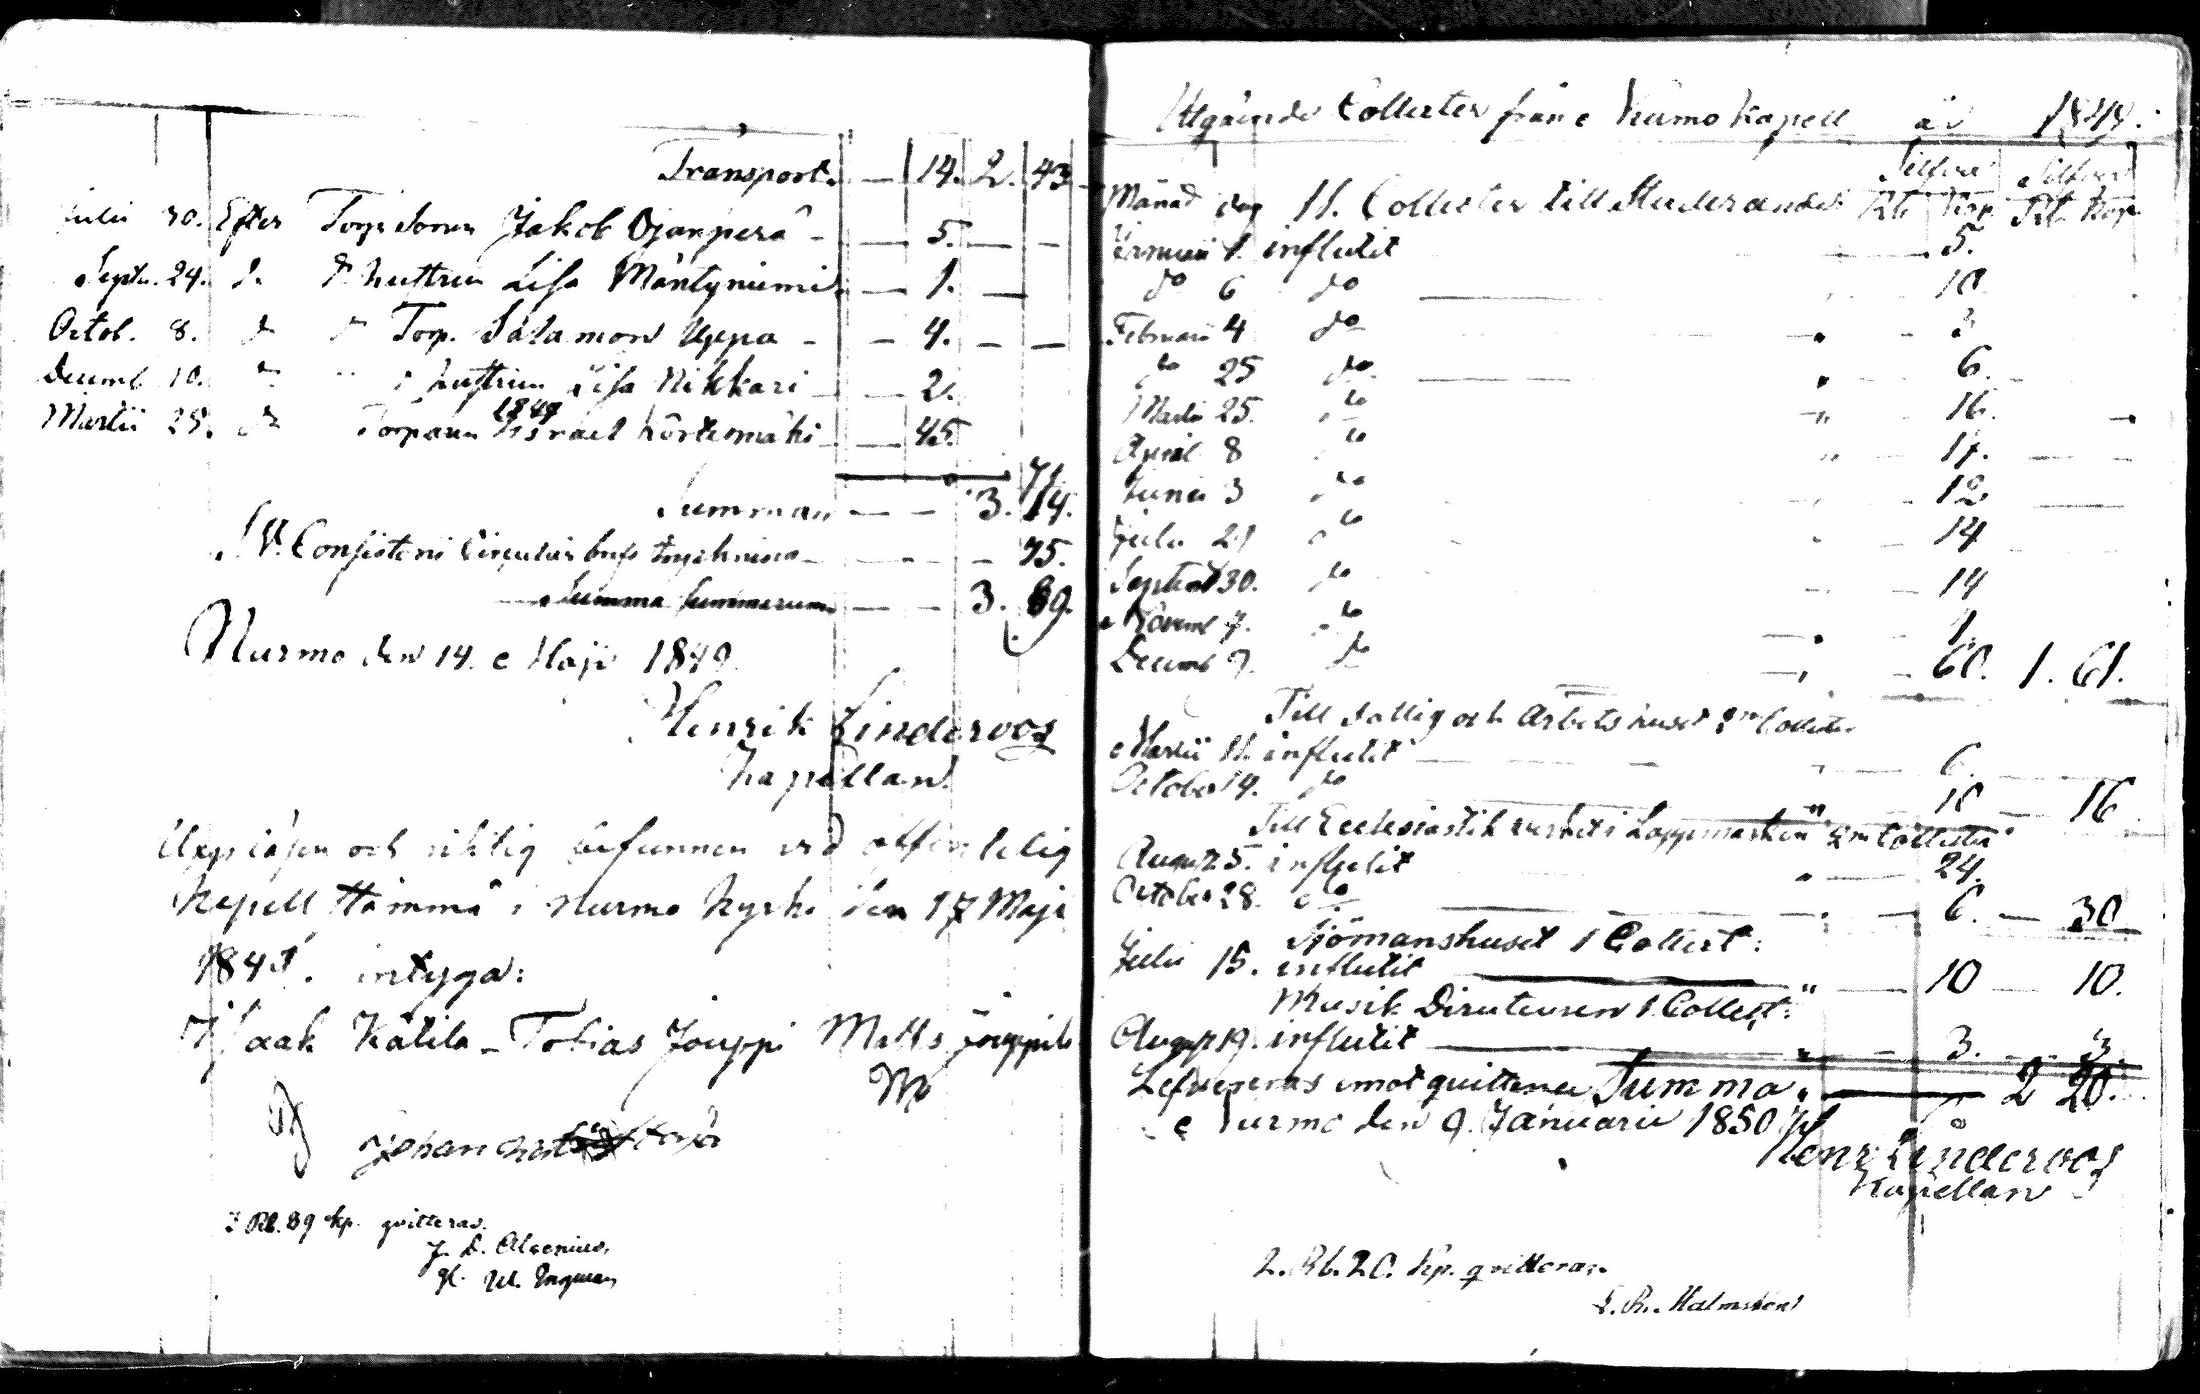 Transport. — 14. 2. 43
Julii 30. Efter Torp. sonen Jakob Ojanperä — 5. — —
Septr. 24. D. Dº hustrun Lisa Mäntyniemi — 1. —
Octob. 8. Torp. Salamon Uppa — 4. — —
Decemb 10. hustrun Lisa Nikkari — 2.
1849
Martii 25. Torparen Israel Körtesmäki — 45.
71
Summan — — 3. 14.
V. Consistorii Circulär — 75.
Summa Summarum — — 3. 89.
Nurmo den 14. Maji 1849.
Henrik Linderoos
Kapellan.
Uppläsen och riktig befunnen vid offentelig
Kapell Stämma i Nurmo Kyrka den 17 Maji
1849. intyga:
Isaak Kätilä - Tobias Jouppi Matts Jouppila
Johan
3 Rb. 89 kp. qvitteras.
J. D. Alcenius.
Utgående Collecter från Nurmo Kapell år 1849.
Silfver Silfver
Månad dag 11. Collecter till Studerande Rb Kop. Rb. Kop
Januarii 1. influtit — 5.
do 6 do — 10
Februarii 4 do " 3
do 25 do — " 6.
Martii 25. do " 16.
April 8 do " 17.
Junii 3 do 12.
Julii 29 do — 14
Septemb 30. do — 14
Novemb 7. do — 4.
Decemb 9. do — 60. 1. 61.
Till Fattig och Arbetshuset 2ne Collecter
Martii 11. influtit — " — 6.
October 14. do — 10 — 16
Till Ecclesiastik verket i Lappmarken 2ne Collecter
August 5. influtit " — 24.
October 28. do — 6. — 30
Sjömanshuset 1 Collect:
Julii 15. influtit — " — 10 — 10.
Musik Directeuren 1. Collect:
August 19. influtit — " — 3. — 3.
Lefvereras emot quittence Summa " — 2 20.
Nurmo den 9. Januarii 1850
Henr Linderoos
Kapellan
2. Rb. 20. kp. qvitteras.
Malmsten